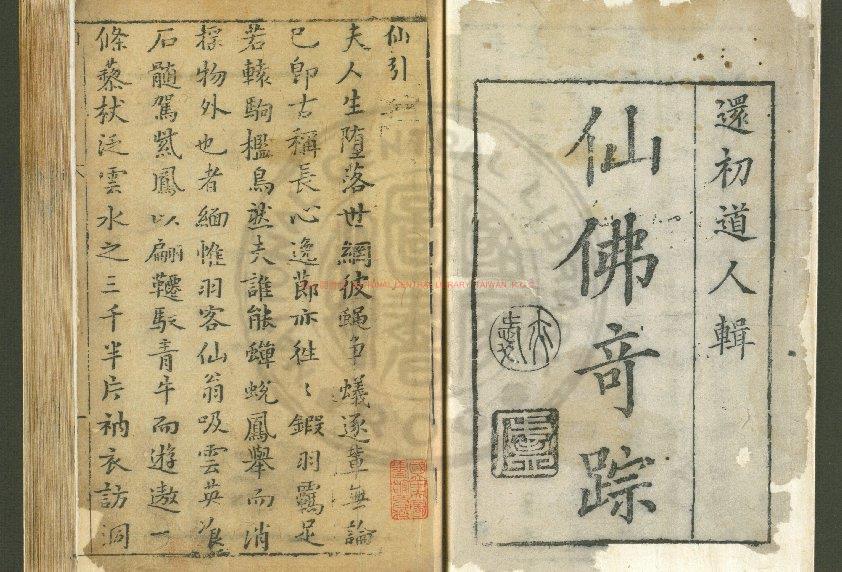 還初道人輯
仙佛奇踪
仙引
夫人生墮落世網彼蝸争蟻逐輩無論
已即古稱長心逸節亦徃〻鍜羽羈足
若轅駒檻鳥然夫誰能蟬蛻鳳舉而消
揺物外也者緬惟羽客仙翁吸雲英飡
石髓駕紫鳳以翩韆馭青牛而遊遨一
條藜杖泛雲水之三千半片衲衣訪洞
NATIONAL CENTRAL LIBRARY, TAIWAN R.O.C.